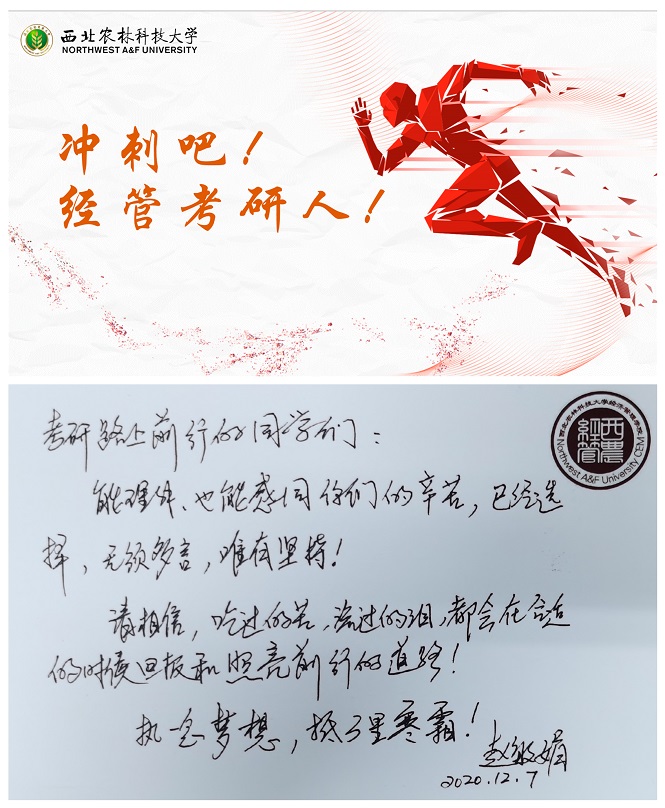 西北农林科技大学
NORTHWEST A&F UNIVERSITY
冲刺吧！
经管考研人！
考研路上前行的同学们：
西北农林科技大学经济管理学院
西農
經管
Northwest A&F University CEM
能理解、也能感同你们的辛苦，已经选
择，无须多言，唯有坚持！
请相信，吃过的苦，流过的泪，都会在合适
的时候回报和照亮前行的道路！
执一定梦想，抵万里寒霜！
赵敏娟
2020.12.7